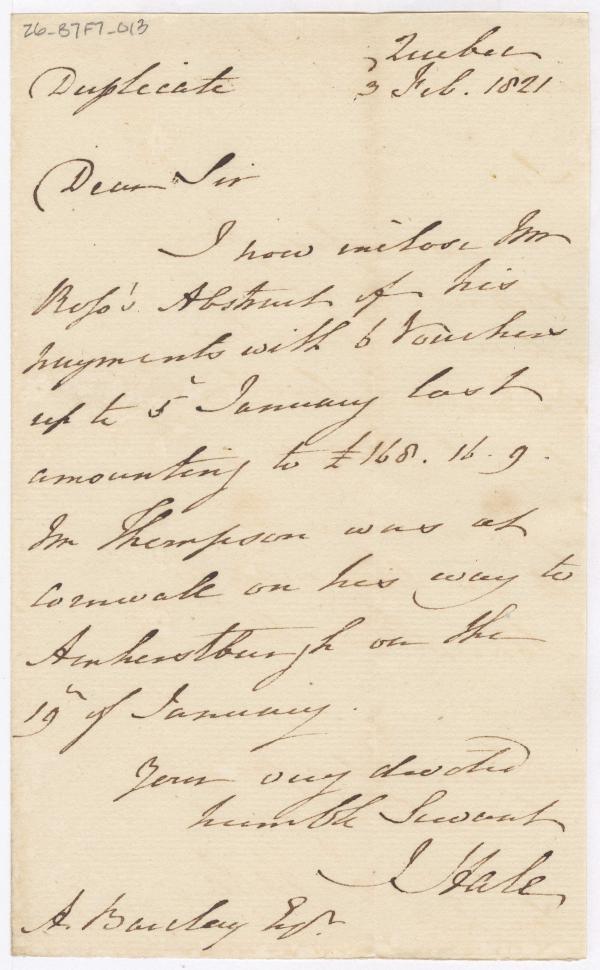 26-B7F7-013
Quebec
Duplicate 3 Feb. 1821
Dear Sir
I now inclose Mr
Ross's Abstract of his
payments with 6 Vouchers
up to 5th January last
amounting to £168. 16. 9.
Mr Thompson was at
Cornwall on his way to
Amherstburgh on the
19th of January.
Your very devoted
humble Servant
J Hale
A. Barclay Esqr.